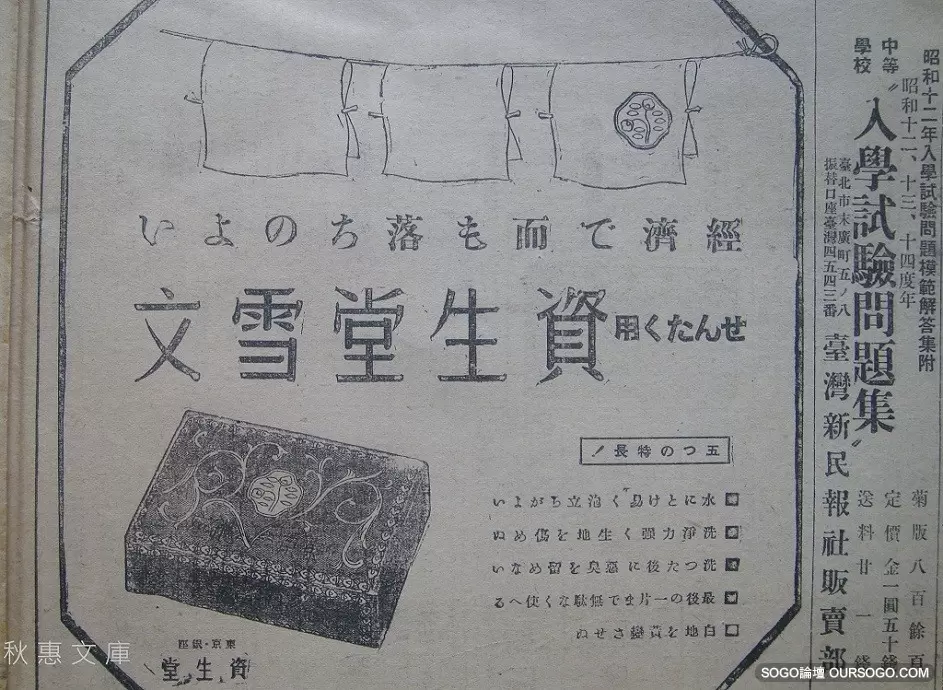 昭和十二年入學試驗問題模範解答集附
昭和十二、十三、十四度年
中等學校
〝入學試驗問題集〟
菊版八百餘頁
定價金一圓五十錢
送料廿一錢
臺北市末廣町五ノ八
振替口座臺灣四五四三番
臺灣新民報社販賣部
經濟で而も落ちのよい
せんたく用 資生堂雪文
五つの特長!
水にとけ易く泡立ちがよい
洗淨力强く生地を傷めぬ
洗つた後に惡臭を留めない
最後の一片まで無駄なく使へる
白地を黃變させぬ
東京・銀座
資生堂
秋惠文庫
SOGO論壇 OURSOGO.COM